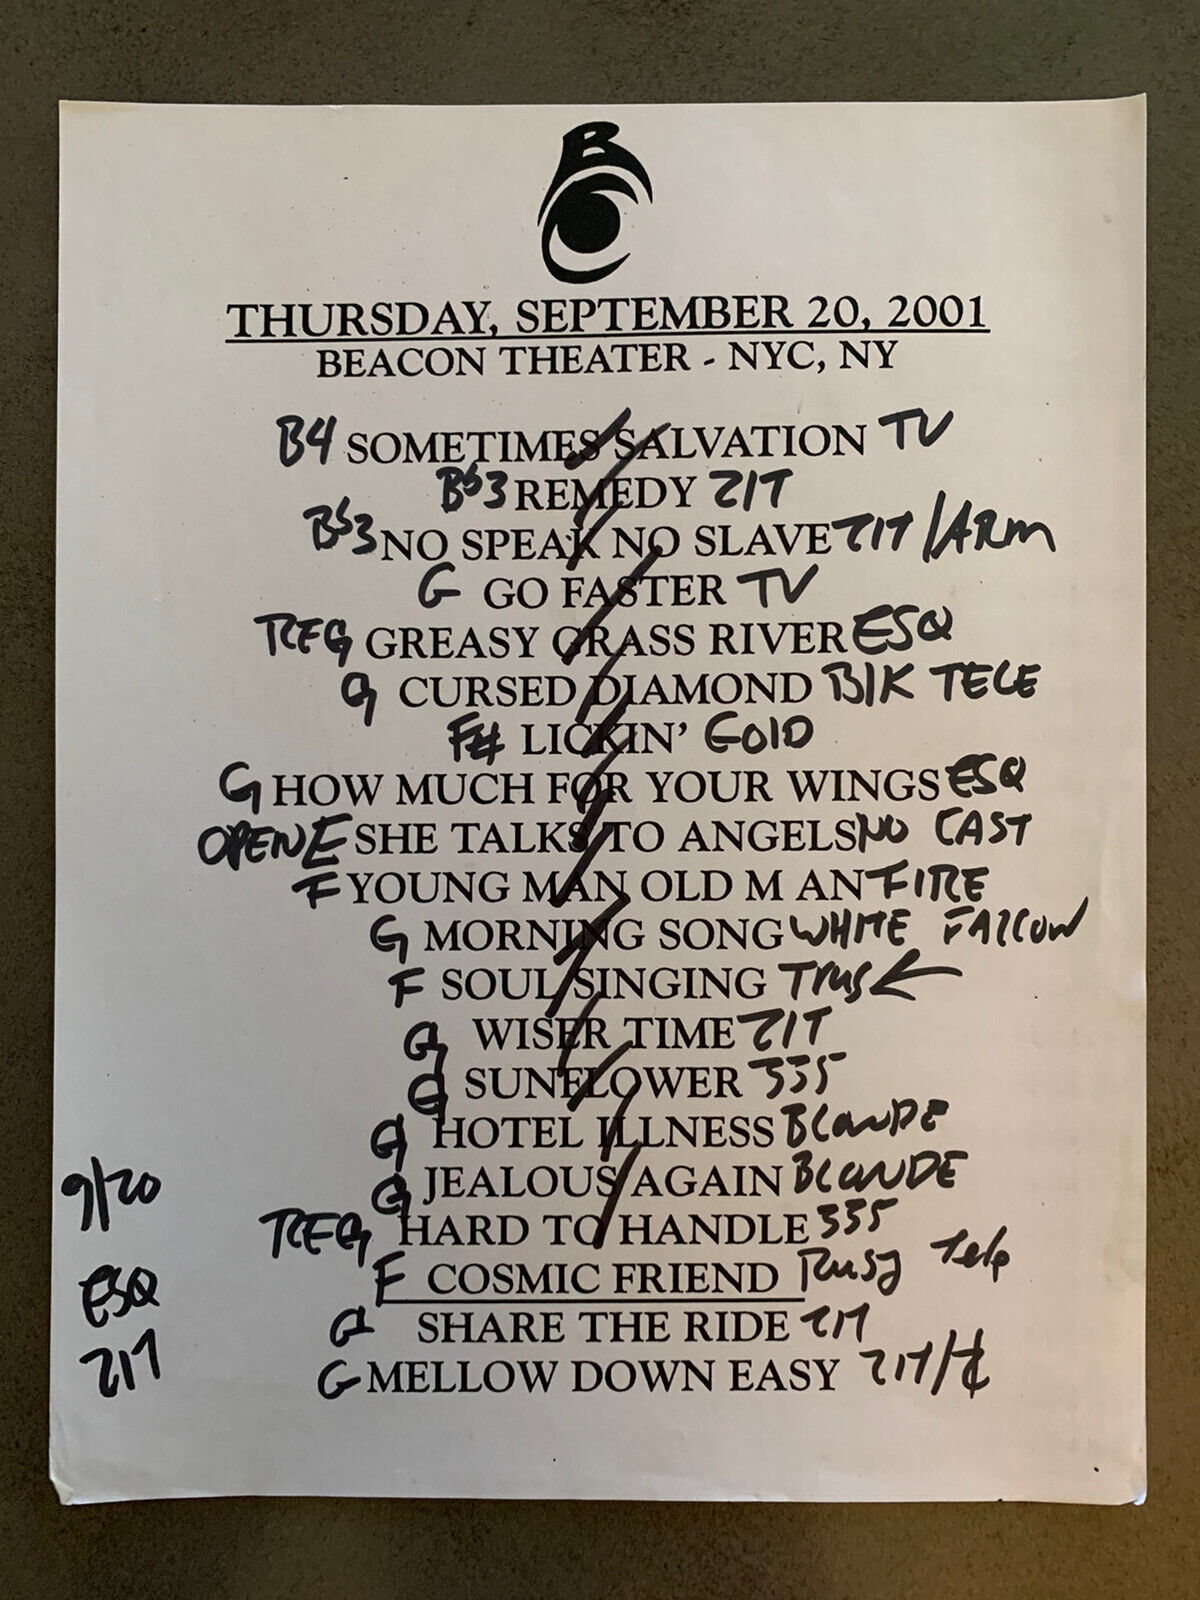 BC
THURSDAY, SEPTEMBER 20, 2001
BEACON THEATER - NYC, NY
B4 SOMETIMES SALVATION TV
Bb3 REMEDY ZIT
Bb3 NO SPEAK NO SLAVE ZIT/ARM
G GO FASTER TV
REG GREASY GRASS RIVER ESQ
G CURSED DIAMOND BLK TELE
F# LICKIN' GOLD
G HOW MUCH FOR YOUR WINGS ESQ
OPEN E SHE TALKS TO ANGELS NO CAST
F YOUNG MAN OLD M AN FIRE
G MORNING SONG WHITE FALCON
F SOUL SINGING TRUS ←
G WISER TIME ZIT
G SUNFLOWER 335
G HOTEL ILLNESS BLONDE
G JEALOUS AGAIN BLONDE
REG HARD TO HANDLE 335
F COSMIC FRIEND Tele
G SHARE THE RIDE ZIT
G MELLOW DOWN EASY ZIT/
9/20
ESQ
ZIT